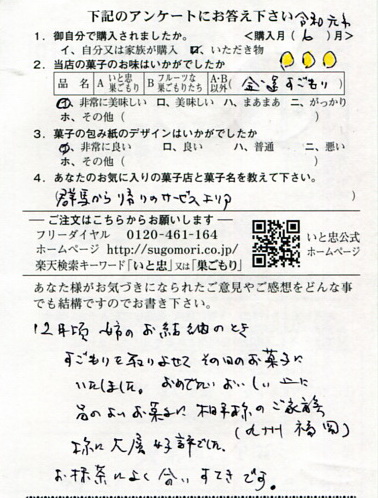 下記のアンケートにお答え下さい 令和元年
1．御自分で購入されましたか。 <購入月（6）月>
イ、自分又は家族が購入 ロ、いただき物
2．当店の菓子のお味はいかがでしたか
品名 A いと忠巣ごもり B フルーツな巣ごもりたち A・B以外（金運すごもり）
イ、非常に美味しい ロ、美味しい ハ、まあまあ ニ、がっかり
ホ、その他（ ）
3．菓子の包み紙のデザインはいかがでしたか
イ、非常に良い ロ、良い ハ、普通 ニ、悪い
ホ、その他（ ）
4．あなたのお気に入りの菓子店と菓子名を教えて下さい。
群馬から帰りのサービスエリア ）
ご注文はこちらからお願いします
フリーダイヤル 0120-461-164
ホームページ http://sugomori.co.jp/
楽天検索キーワード「いと忠」又は「巣ごもり」
いと忠公式
ホームページ
あなた様がお気づきになられたご意見やご感想をどんな事
でも結構ですのでお書き下さい。
12月頃 姉のお結納のとき
すごもりを取りよせて その日のお菓子に
いたしました。おめでたい おいしい 上に
品のよいお菓子に 相手様のご家族
（九州 福岡）
様に大層好評でした。
お抹茶によく合い すてきです。